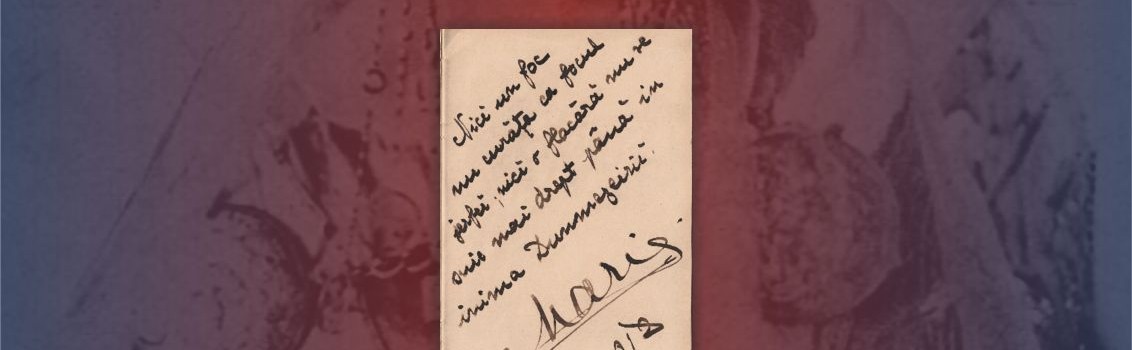 Nici un foc
nu curăţa ca focul
jerfei, nici o flacără nu se
suie mai drept până în
inima Dumnezeirii.
Maris